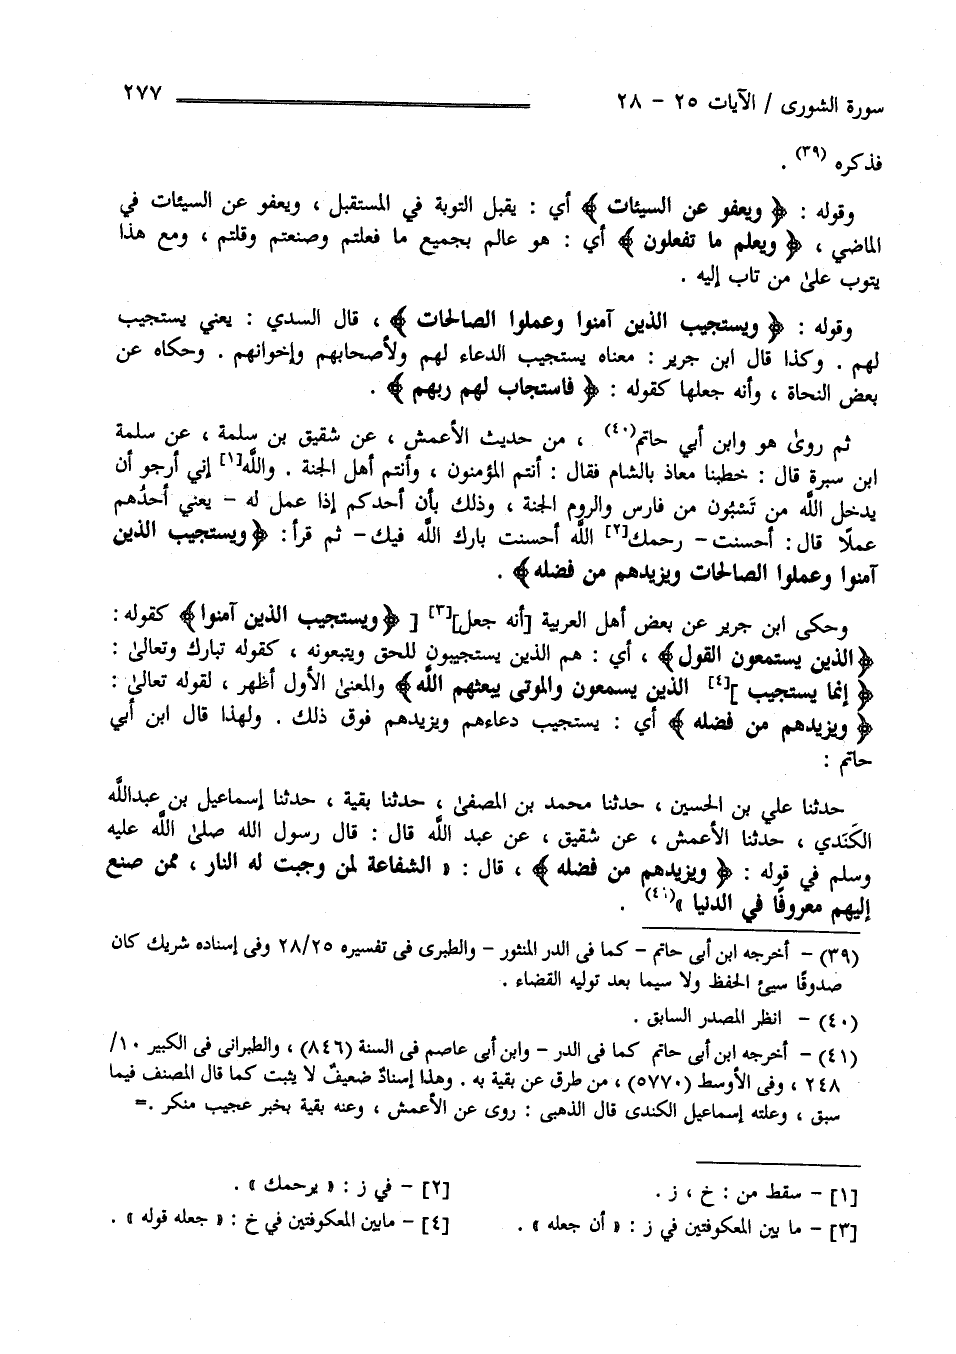 سورة الشورى / الآيات ٢٥ - ٢٨ ٢٧٧
فذكره (٣٩) .
وقوله : ﴿ ويعفو عن السيئات ﴾ أي : يقبل التوبة في المستقبل ، ويعفو عن السيئات في
الماضي ، ﴿ ويعلم ما تفعلون ﴾ أي : هو عالم بجميع ما فعلتم وصنعتم وقلتم ، ومع هذا
يتوب علىٰ من تاب إليه .
وقوله : ﴿ ويستجيب الذين آمنوا وعملوا الصالحات ﴾ ، قال السدي : يعني يستجيب
لهم . وكذا قال ابن جرير : معناه يستجيب الدعاء لهم ولأصحابهم وإخوانهم . وحكاه عن
بعض النحاة ، وأنه جعلها كقوله : ﴿ فاستجاب لهم ربهم ﴾ .
ثم روىٰ هو وابن أبي حاتم(٤٠) ، من حديث الأعمش ، عن شقيق بن سلمة ، عن سلمة
ابن سبرة قال : خطبنا معاذ بالشام فقال : أنتم المؤمنون ، وأنتم أهل الجنة . واللَّه[١] إني أرجو أن
يدخل اللَّه من تَسْبُون من فارس والروم الجنة ، وذلك بأن أحدكم إذا عمل له - يعني أحدُهم
عملًا قال: أحسنت - رحمك[٢] اللَّه أحسنت بارك اللَّه فيك - ثم قرأ: ﴿ ويستجيب الذين
آمنوا وعملوا الصالحات ويزيدهم من فضله﴾ .
وحكى ابن جرير عن بعض أهل العربية [أنه جعل][٣] [ ﴿ويستجيب الذين آمنوا﴾ كقوله:
﴿الذين يستمعون القول﴾ ، أي : هم الذين يستجيبون للحق ويتبعونه ، كقوله تبارك وتعالىٰ :
﴿ إنما يستجيب ][٤] الذين يسمعون والموتى يبعثهم اللَّه﴾ والمعنىٰ الأول أظهر ، لقوله تعالىٰ :
﴿ ويزيدهم من فضله ﴾ أي : يستجيب دعاءهم ويزيدهم فوق ذلك . ولهذا قال ابن أبي
حاتم :
حدثنا علي بن الحسين ، حدثنا محمد بن المصفىٰ ، حدثنا بقية ، حدثنا إسماعيل بن عبداللَّه
الكَنَدي ، حدثنا الأعمش ، عن شقيق ، عن عبد اللَّه قال : قال رسول الله صلىٰ اللَّه عليه
وسلم في قوله : ﴿ ويزيدهم من فضله ﴾ ، قال : « الشفاعة لمن وجبت له النار ، ممن صنع
إليهم معروفًا في الدنيا »(٤١) .
(٣٩) - أخرجه ابن أبى حاتم - كما فى الدر المنثور - والطبرى فى تفسيره ٢٨/٢٥ وفى إسناده شريك كان
صدوقًا سيئ الحفظ ولا سيما بعد توليه القضاء .
(٤٠) - انظر المصدر السابق .
(٤١) - أخرجه ابن أبى حاتم كما فى الدر - وابن أبى عاصم فى السنة (٨٤٦) ، والطبرانى فى الكبير ١٠/
٢٤٨ ، وفى الأوسط (٥٧٧٠) ، من طرق عن بقية به . وهذا إسنادٌ ضعيفٌ لا يثبت كما قال المصنف فيما
سبق ، وعلته إسماعيل الكندى قال الذهبى : روى عن الأعمش ، وعنه بقية بخبر عجيب منكر .=
[١] - سقط من : خ ، ز . [٢] - في ز : « يرحمك » .
[٣] - ما بين المعكوفتين في ز : « أن جعله » . [٤] - مابين المعكوفتين في خ : « جعله قوله » .